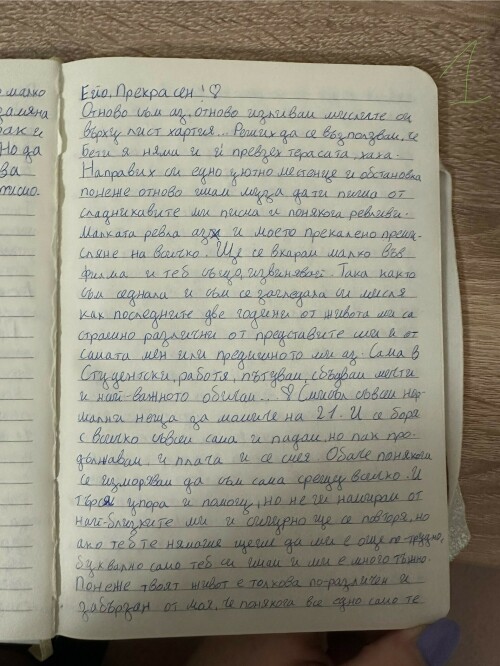 малко
замяна
рак и
но да
ва
писмо.
1
Ейо, Прекрасен! ♡
Отново съм аз, отново изливам мислите си
върху лист хартия... Реших да се възползвам, че
Бети я няма и ѝ превзех терасата, хаха.
Направих си едно уютно местенце и обстановка
понеже отново имам муза да ти пиша от
сладникавите ми писма и понякога ревливи.
Малката ревла аз и моето прекалено преми-
сляне на всичко. Ще се вкарам малко във
филма и теб също, извинявай. Така както
съм седнала и съм се загледала си мисля
как последните две години от живота ми са
страшно различни от представите ми и от
самата мен или предишното ми аз. Сама в
Студентски, работя, пътувам, сбъдвам мечти
и най-важното обичам.. ♡ Смисъл съвсем нор-
мални неща за момиче на 21. И се боря
с всичко съвсем сама и падам, но пак про-
дължавам и плача и се смея. Обаче понякога
се изморявам да съм сама срещу всичко. И
търся упора и помощ, но не ги намирам от
най-близките ми и сигурно ще се повторя, но
ако теб те нямаше щеше да ми е още по-трудно,
буквално само теб си имам и ми е много тъжно.
Понеже твоят живот е толкова по-различен и
забързан от моя, че понякога все едно само те